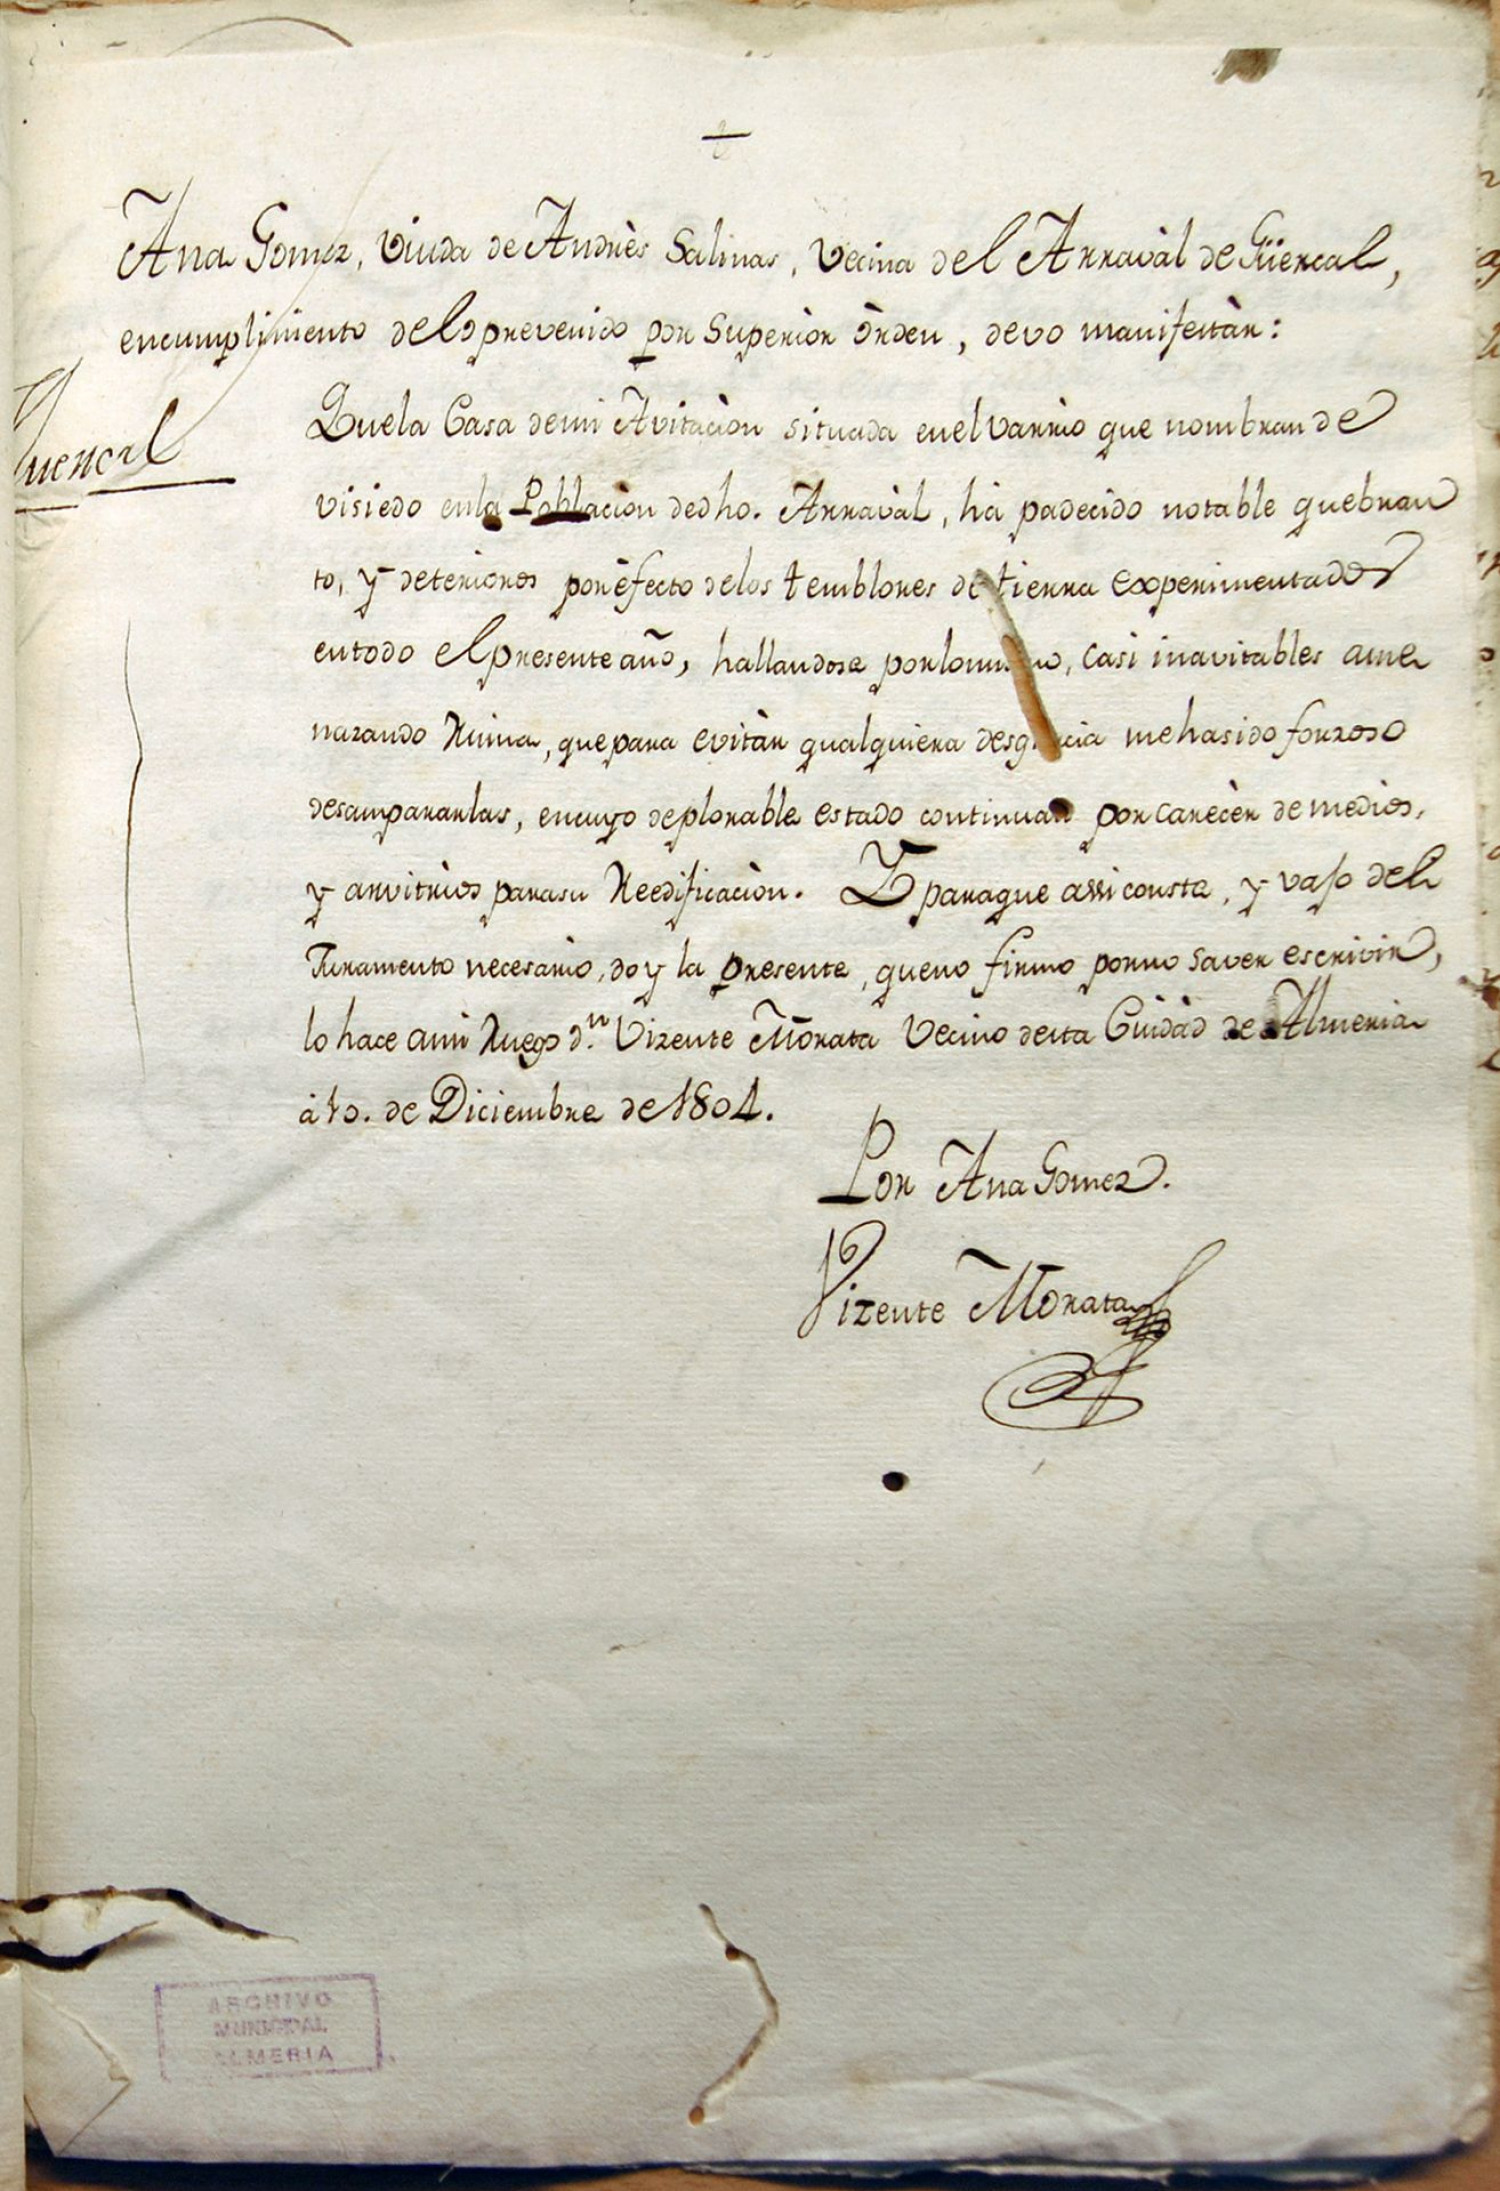 Ana Gomez, Viuda de Andrès Salinas, Vecina del Arravàl de Güercal,
encumplimiento delo prevenido por Superiòr òrden, devo manifestàr:
Guercal
Quela Casa demi Avitaciòn situada enel varrio que nombran de
visiedo enla Poblaciòn dedho. Arravàl, hà padecido notable quebran
to, y deterioros porèfecto delos temblores de tierra experimentados
entodo el presente año, hallandose porlo menos, casi inavitables ame
nazando Ruina, quepara evitàr qualquiera desgracia mehasido forzoso
desampararlas, encuyo deplorable estado continuan por carecèr de medios,
y arvitrios parasu Reedificaciòn. Y paraque assi conste, y vajo del
Juramento necesario, doy la presente, queno firmo porno saver escrivir,
lo hace ami Ruego d.n Vizente Morata Vecino desta Ciudàd de Almeria
à 10. de Diciembre de 1804.
Por Ana Gomez.
Vizente Morata
ARCHIVO
MUNICIPAL
ALMERIA